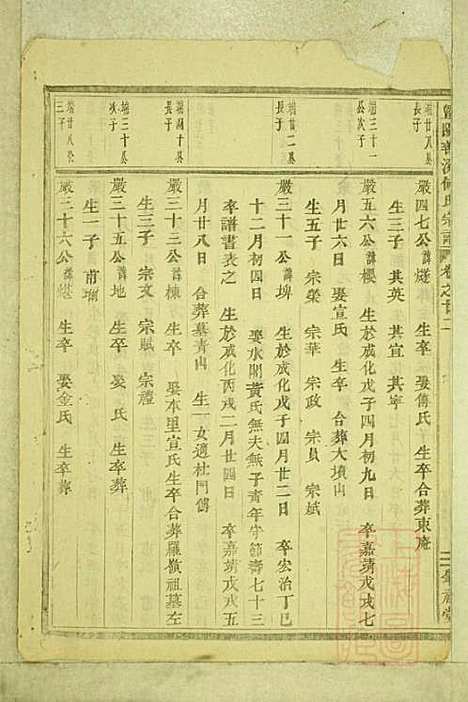 暨陽 何氏宗譜 卷之廿二
端廿八公長子
嚴四七公諱燧 生卒 娶傅氏 生卒合葬東庵
生三子 其英 其宣 其寧
端三十一公次子
嚴五六公諱櫻 生於成化戊子四月初九日 卒嘉靖戊戌七
月廿六日 娶宣氏 生卒 合葬大墳山
生五子 宗榮 宗華 宗政 宗員 宗斌
端廿二公長子
嚴三十一公諱埤 生於成化戊子四月廿二日 卒宏治丁巳
十二月初四日 娶水閣黃氏無夫無子青年守節壽七十三
卒譜書表之 生於成化丙戌二月廿四日 卒嘉靖戊戌五
月廿八日 合葬墓青山 生一女適杜門傅
端湖十公長子
嚴三十三公諱棟 生卒 娶本里宣氏生卒合葬羅嶺祖墓左
生三子 宗文 宗賦 宗禮
端三十公次子
嚴三十五公諱地 生卒 娶 氏 生卒葬
生一子 甫
端廿八公三子
嚴三十六公諱 生卒 娶金氏 生卒葬